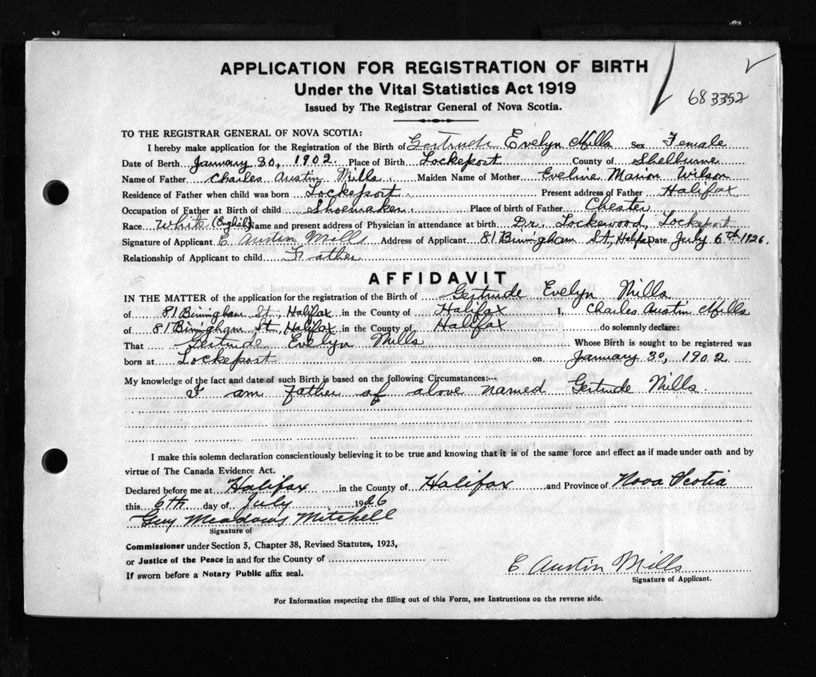 APPLICATION FOR REGISTRATION OF BIRTH
Under the Vital Statistics Act 1919
Issued by The Registrar General of Nova Scotia.
683352
TO THE REGISTRAR GENERAL OF NOVA SCOTIA:
I hereby make application for the Registration of the Birth of Gertrude Evelyn Mills Sex Female
Date of Berth January 30, 1902 Place of Birth Lockeport County of Shelburne
Name of Father Charles Austin Mills Maiden Name of Mother Eveline Marion Wilson
Residence of Father when child was born Lockeport Present address of Father Halifax
Occupation of Father at Birth of child Shoemaker Place of birth of Father Chester
Race White (English) Name and present address of Physician in attendance at birth Dr. Lockewood, Lockeport
Signature of Applicant C Austin Mills Address of Applicant 81 Bimingham St, Halifax Date July 6th 1926.
Relationship of Applicant to child Father
AFFIDAVIT
IN THE MATTER of the application for the registration of the Birth of Gertrude Evelyn Mills
of 81 Bimigham St, Halifax in the County of Halifax I, Charles Austin Mills
of 81 Bimigham St, Halifax in the County of Halifax do solemnly declare:
That Gertrude Evelyn Mills Whose Birth is sought to be registered was
born at Lockeport on January 30, 1902
My knowledge of the fact and date of such Birth is based on the following Circumstances:—
I am Father of above named Gertrude Mills.
I make this solemn declaration conscientiously believing it to be true and knowing that it is of the same force and effect as if made under oath and by
virtue of The Canada Evidence Act.
Declared before me at Halifax in the County of Halifax and Province of Nova Scotia
this 6th day of July 1926
Guy Meadows Mitchell
Signature of
Commissioner under Section 5, Chapter 38, Revised Statutes, 1923,
or Justice of the Peace in and for the County of
If sworn before a Notary Public affix seal.
C Austin Mills
Signature of Applicant.
For Information respecting the filling out of this Form, see Instructions on the reverse side.